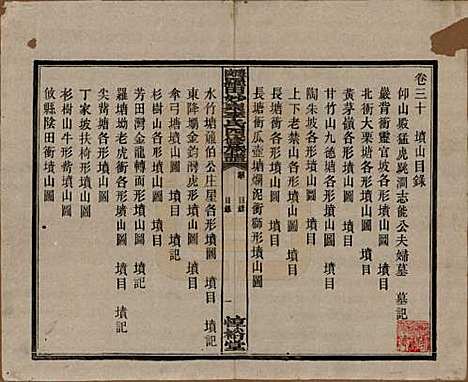 卷三十 墳山目錄
仰山殿猛虎跳澗志能公夫婦墓 墓記
嚴背衝靈官坡各形墳山圖
北衝大栗塘各形墳山圖
黄茅嶺各形墳山圖
甘竹山九德堂各形墳山圖
陶朱坡各形墳山圖
上下老禁山各形墳山圖
長塘衝瓜壺塘爛泥衝獅形墳山圖
目錄
一
惇敘堂
水竹塘龍伯公庄屋各形墳山圖 墳目
東降塴金鈎灣虎形墳山圖 墳目
傘弓塘墳山圖 墳目 墳記
杉樹山各形墳山圖 墳目
芳田灣金龍轉面形墳山圖 墳目 墳記
羅塘坳老虎衝各形墳山圖 墳目
尖嵛塘各形墳山圖 墳目
丁家坡扶椅形墳山圖 墳目
杉樹山牛形嵛墳山圖 墳目 墳記
攸縣陸田衝墳山圖